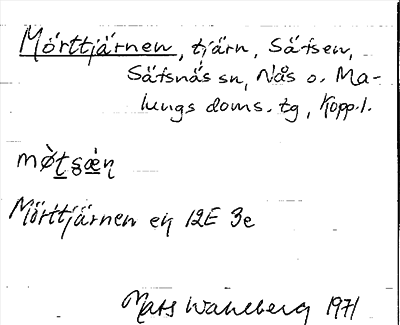 Mörttjärnen, tjärn, Säfsen,
Säfsnäs sn, Nås o. Ma-
lungs doms. tg, Kopp.l.
mø̀tṣæ̀ṇ
Mörttjärnen ek 12E 3e
Mats Wahlberg 1971